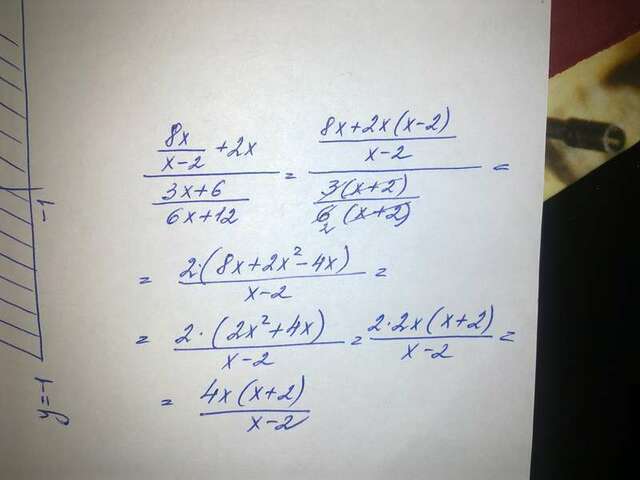 (8x/(x-2) + 2x)/((3x+6)/(6x+12)) = ((8x+2x(x-2))/(x-2))/((3(x+2))/(6(x+2))) =
2
= 2·(8x+2x²-4x)/(x-2) =
= 2·(2x²+4x)/(x-2) = 2·2x(x+2)/(x-2) =
= 4x(x+2)/(x-2)
-1
y=-1